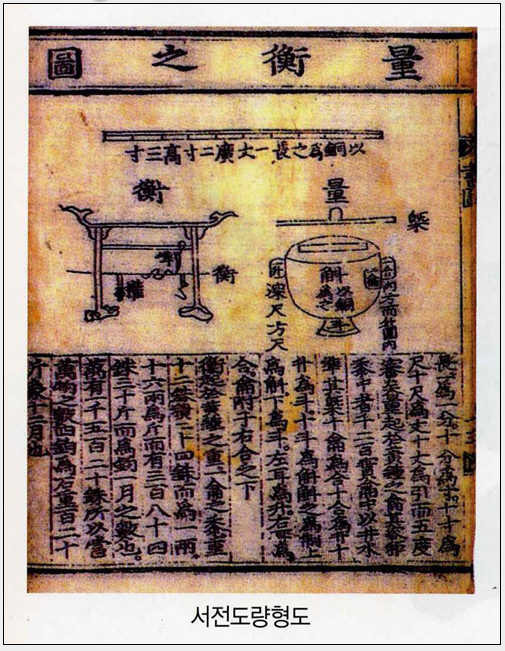 量衡之圖
以銅爲之長一丈廣二寸高三寸
量
槩
斛以銅爲之
斗
升
深尺方尺
衡
衡
權
長爲一分。十分爲寸。十寸爲
尺十尺爲丈十丈爲引而五度
審矣量起於黃鍾之龠其容秬
黍中者千二百實龠中以井水
準其槩十龠爲合十合爲升十
升爲斗。十斗爲斛斛之爲制上
爲斛。下爲斗。左耳爲升右耳爲
合龠附于右合之下
衡起於黃鍾之重一龠之黍重
十二銖積二十四銖而爲一兩
十六兩爲斤而有三百八十四
銖三十斤而爲鈞一月之數也。
萬有一千五百二十銖所以當
萬物之數四鈞爲石重百二十
斤象十二月也
서전도량형도